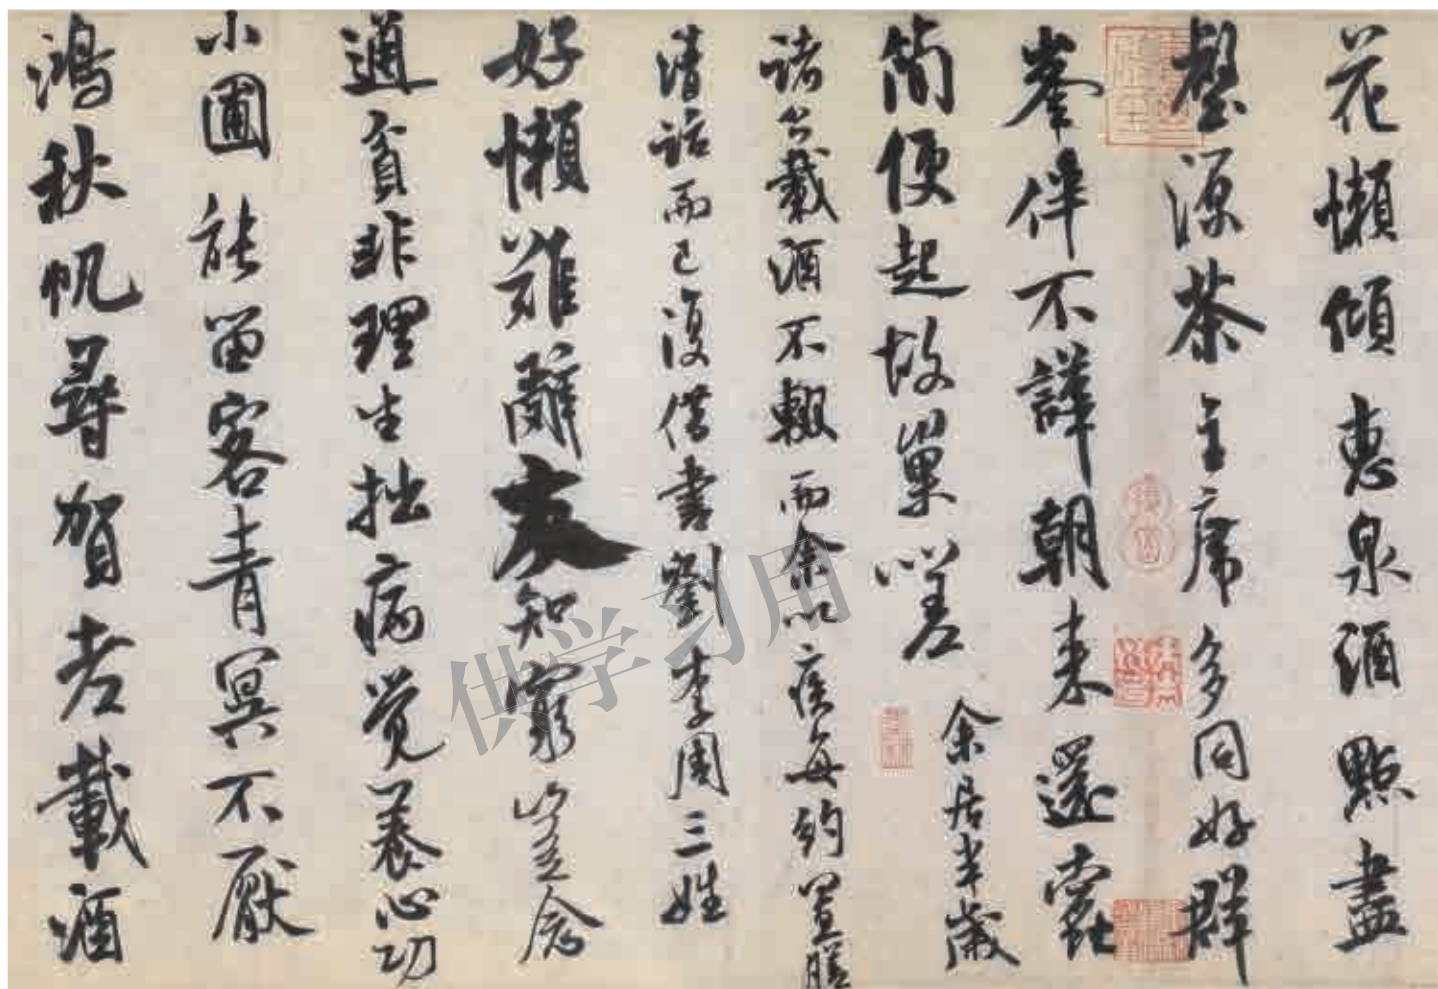 花懶傾惠泉酒點盡
壑源茶主席多同好群
峯伴不譁朝来還蠹
簡便起故巢嗟
余居半歲
諸公載酒不輟而余以疾每約置膳
清話而已復借書劉李周三姓
好懶難辭友知窮豈念
通貧非理生拙病覺養心功
小圃能留客青冥不厭
鴻秋帆尋賀老載酒
供学习用